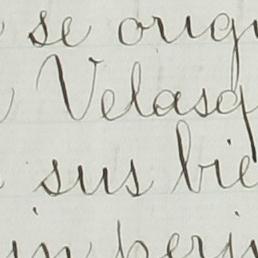 se orig
Velasq
sus bie
in perj